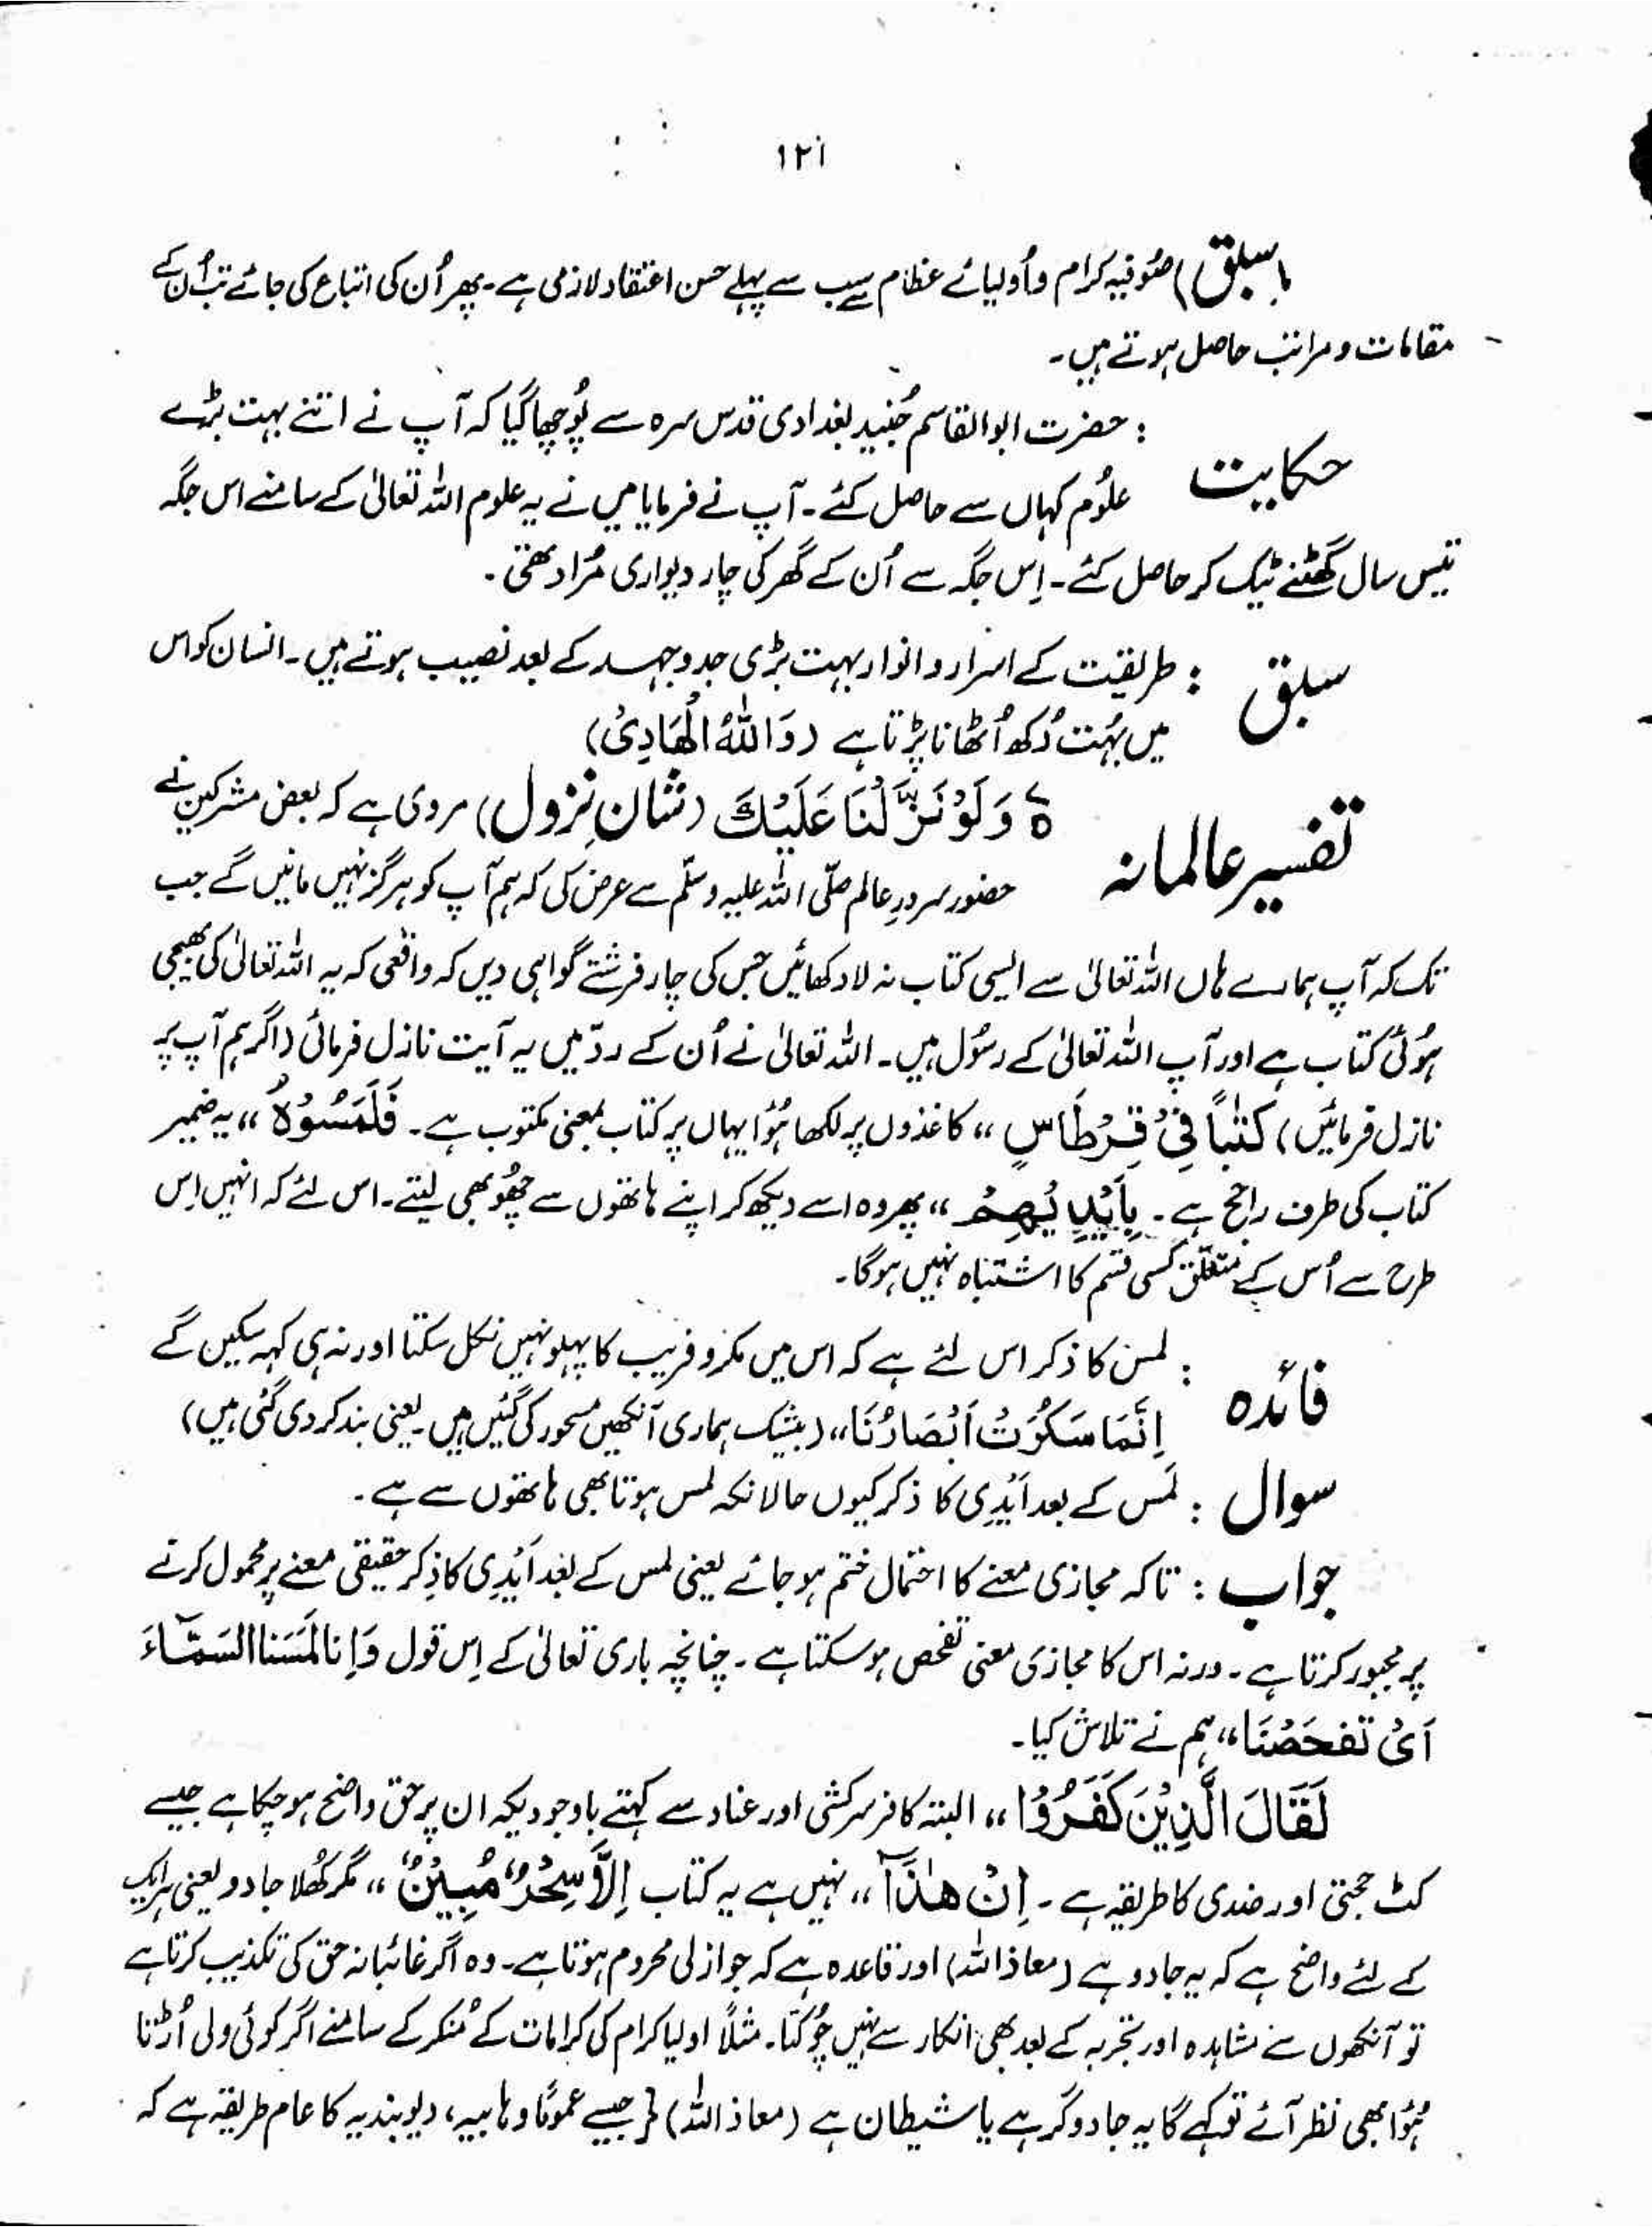 ۱۲۱
(سبق) صُوفیہ کرام و اُولیائے عظام سے سب سے پہلے حسن اعتقاد لازمی ہے۔ پھر اُن کی اتباع کی جائے تب اُن کے
مقامات و مراتب حاصل ہوتے ہیں۔
حکایت : حضرت ابو القاسم جُنید بغدادی قدس سرہ سے پُوچھا گیا کہ آپ نے اتنے بہت بڑے
علُوم کہاں سے حاصل کئے۔ آپ نے فرمایا میں نے یہ علوم اللہ تعالیٰ کے سامنے اس جگہ
تیس سال گھٹنے ٹیک کر حاصل کئے۔ اِس جگہ سے اُن کے گھر کی چار دیواری مُراد تھی۔
سبق : طریقت کے اسرار و انوار بہت بڑی جد و جہد کے بعد نصیب ہوتے ہیں۔ انسان کو اس
میں بہُت دُکھ اُٹھانا پڑتا ہے (وَاللّٰہُ الْھَادِیْ)
تفسیر عالمانہ وَلَوْ نَزَّلْنَا عَلَيْكَ (شان نزول) مروی ہے کہ بعض مشرکین نے
حضور سرورِ عالم صلّی اللہ علیہ وسلّم سے عرض کی کہ ہم آپ کو ہرگز نہیں مانیں گے جب
تک کہ آپ ہمارے ہاں اللہ تعالیٰ سے ایسی کتاب نہ لا دکھائیں جس کی چار فرشتے گواہی دیں کہ واقعی کہ یہ اللہ تعالیٰ کی بھیجی
ہُوئی کتاب ہے اور آپ اللہ تعالیٰ کے رسُول ہیں۔ اللہ تعالیٰ نے اُن کے ردّ میں یہ آیت نازل فرمائی (اگر ہم آپ پر
نازل فرمائیں) کِتٰباً فِیْ قِرْطَاسٍ ،، کاغذوں پر لکھا ہُوا یہاں پر کتاب بمعنی مکتوب ہے۔ فَلَمَسُوْہُ ،، یہ ضمیر
کتاب کی طرف راجح ہے۔ بِاَیْدِیْہِمْ ،، پھر وہ اسے دیکھ کر اپنے ہاتھوں سے چھُو بھی لیتے۔ اس لئے کہ انہیں اِس
طرح سے اُس کے متعلّق کسی قسم کا اشتباہ نہیں ہوگا۔
فائدہ : لمس کا ذکر اس لئے ہے کہ اس میں مکر و فریب کا پہلو نہیں نکل سکتا اور نہ ہی کہہ سکیں گے
اِنَّمَا سَکُرَتْ اَبْصَارُنَا،، (بیشک ہماری آنکھیں مسحور کی گئیں ہیں یعنی بند کر دی گئی ہیں)
سوال : لَمس کے بعد اَیْدِی کا ذکر کیوں حالانکہ لمس ہوتا بھی ہاتھوں سے ہے۔
جواب : تاکہ مجازی معنے کا احتمال ختم ہو جائے یعنی لمس کے بعد اَیْدِی کا ذِکر حقیقی معنے پر محمول کرنے
پر مجبور کرتا ہے۔ ورنہ اس کا مجازی معنی تفحص ہو سکتا ہے۔ چنانچہ باری تعالیٰ کے اِس قول وَاِنا لَمَسَنا السَمَّآءَ
اَیْ تَفحَصْنَا،، ہم نے تلاش کیا۔
لَقَالَ الَّذِیْنَ کَفَرُوْا ،، البتہ کافر سرکشی اور عناد سے کہتے باوجودیکہ ان پر حق واضح ہو چکا ہے جیسے
کٹ حجتی اور ضدی کا طریقہ ہے۔ اِنْ ھٰذَا ،، نہیں ہے یہ کتاب اِلَّا سِحْرٌ مُّبِیْنٌ ،، مگر کھُلا جادو یعنی ہر ایک
کے لئے واضح ہے کہ یہ جادو ہے (معاذ اللہ) اور قاعدہ ہے کہ جو ازلی محروم ہوتا ہے۔ وہ اگر غائبانہ حق کی تکذیب کرتا ہے
تو آنکھوں سے مشاہدہ اور تجربہ کے بعد بھی انکار سے نہیں چُوکتا۔ مثلاً اولیا کرام کی کرامات کے مُنکر کے سامنے اگر کوئی ولی اُڑتا
ہُوا بھی نظر آئے تو کہے گا یہ جادوگر ہے یا شیطان ہے (معاذ اللہ) { جیسے عموماً وہابیہ، دیوبندیہ کا عام طریقہ ہے کہ